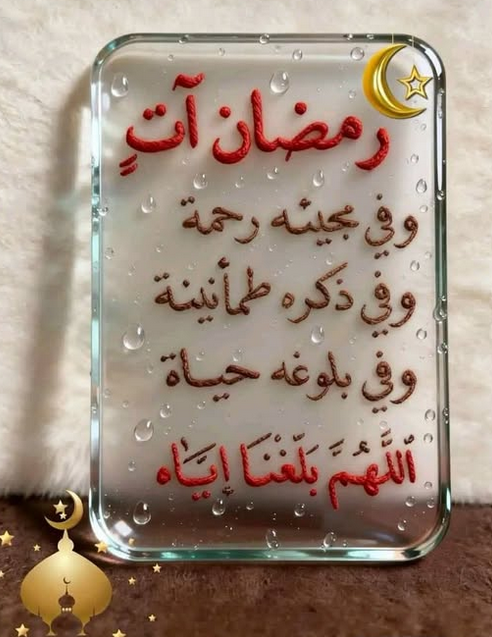 رمضان آتٍ
وفي مجيئه رحمة
وفي ذكره طمأنينة
وفي بلوغه حياة
اللَّهُمَّ بَلِّغْنَا إِيَّاه